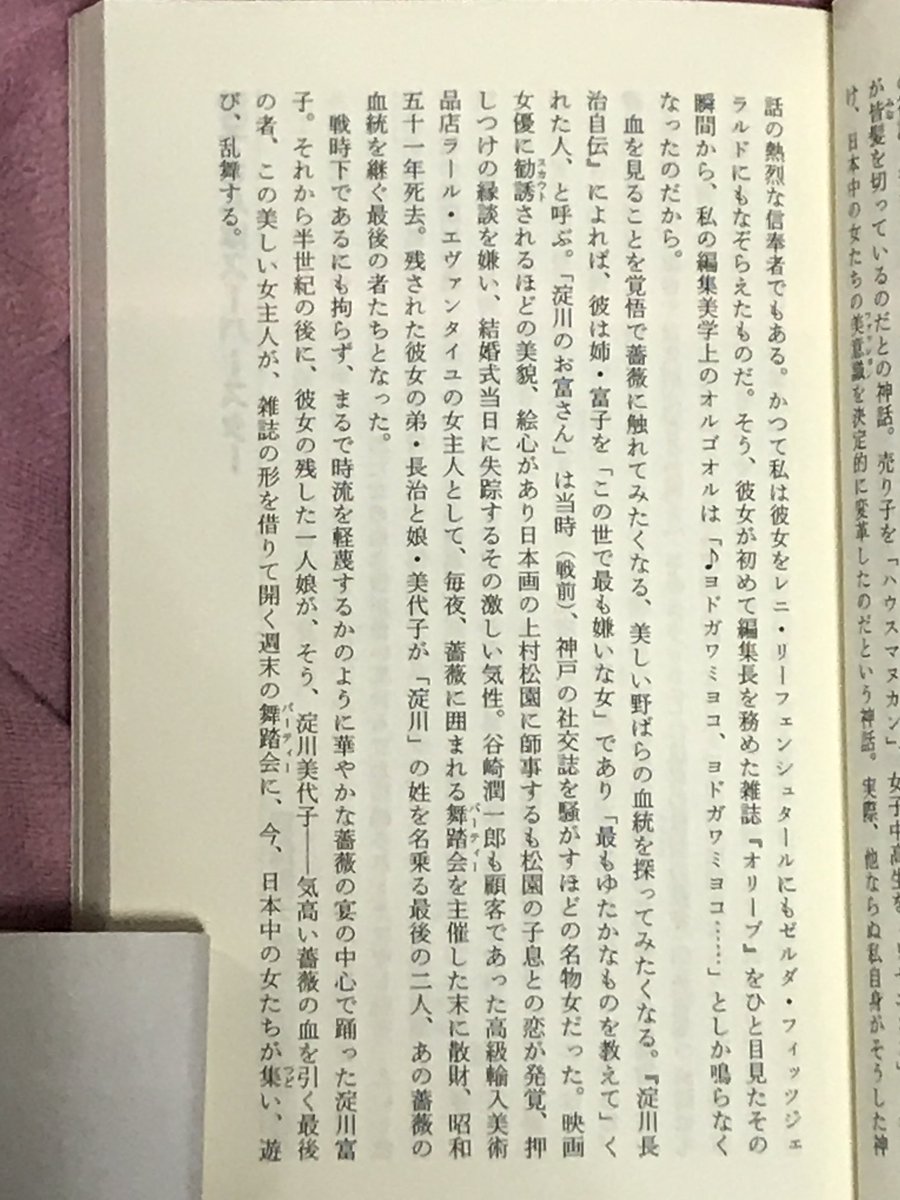 が皆髪を切っているのだとの神話。売り子を「ハウスマヌカン」、女子中高生を
け、日本中の女たちの美意識を決定的に変革したのだという神話。実際、他ならぬ私自身がそうした神
話の熱烈な信奉者でもある。かつて私は彼女をレニ・リーフェンシュタールにもゼルダ・フィッツジェ
ラルドにもなぞらえたものだ。そう、彼女が初めて編集長を務めた雑誌『オリーブ』をひと目見たその
瞬間から、私の編集美学上のオルゴオルは「♪ヨドガワミヨコ、ヨドガワミヨコ……」としか鳴らなく
なったのだから。
血を見ることを覚悟で薔薇に触れてみたくなる、美しい野ばらの血統を探ってみたくなる。『淀川長
治自伝』によれば、彼は姉・富子を「この世で最も嫌いな女」であり「最もゆたかなものを教えて」く
れた人、と呼ぶ。「淀川のお富さん」は当時（戦前）、神戸の社交誌を騒がすほどの名物女だった。映画
女優に勧誘されるほどの美貌、絵心があり日本画の上村松園に師事するも松園の子息との恋が発覚、押
しつけの縁談を嫌い、結婚式当日に失踪するその激しい気性。谷崎潤一郎も顧客であった高級輸入美術
品店ラール・エヴァンタイユの女主人として、毎夜、薔薇に囲まれる舞踏会を主催した末に散財、昭和
五十一年死去。残された彼女の弟・長治と娘・美代子が「淀川」の姓を名乗る最後の二人、あの薔薇の
血統を継ぐ最後の者たちとなった。
戦時下であるにも拘らず、まるで時流を軽蔑するかのように華やかな薔薇の宴の中心で踊った淀川富
子。それから半世紀の後に、彼女の残した一人娘が、そう、淀川美代子――気高い薔薇の血を引く最後
の者、この美しい女主人が、雑誌の形を借りて開く週末の舞踏会に、今、日本中の女たちが集い、遊
び、乱舞する。